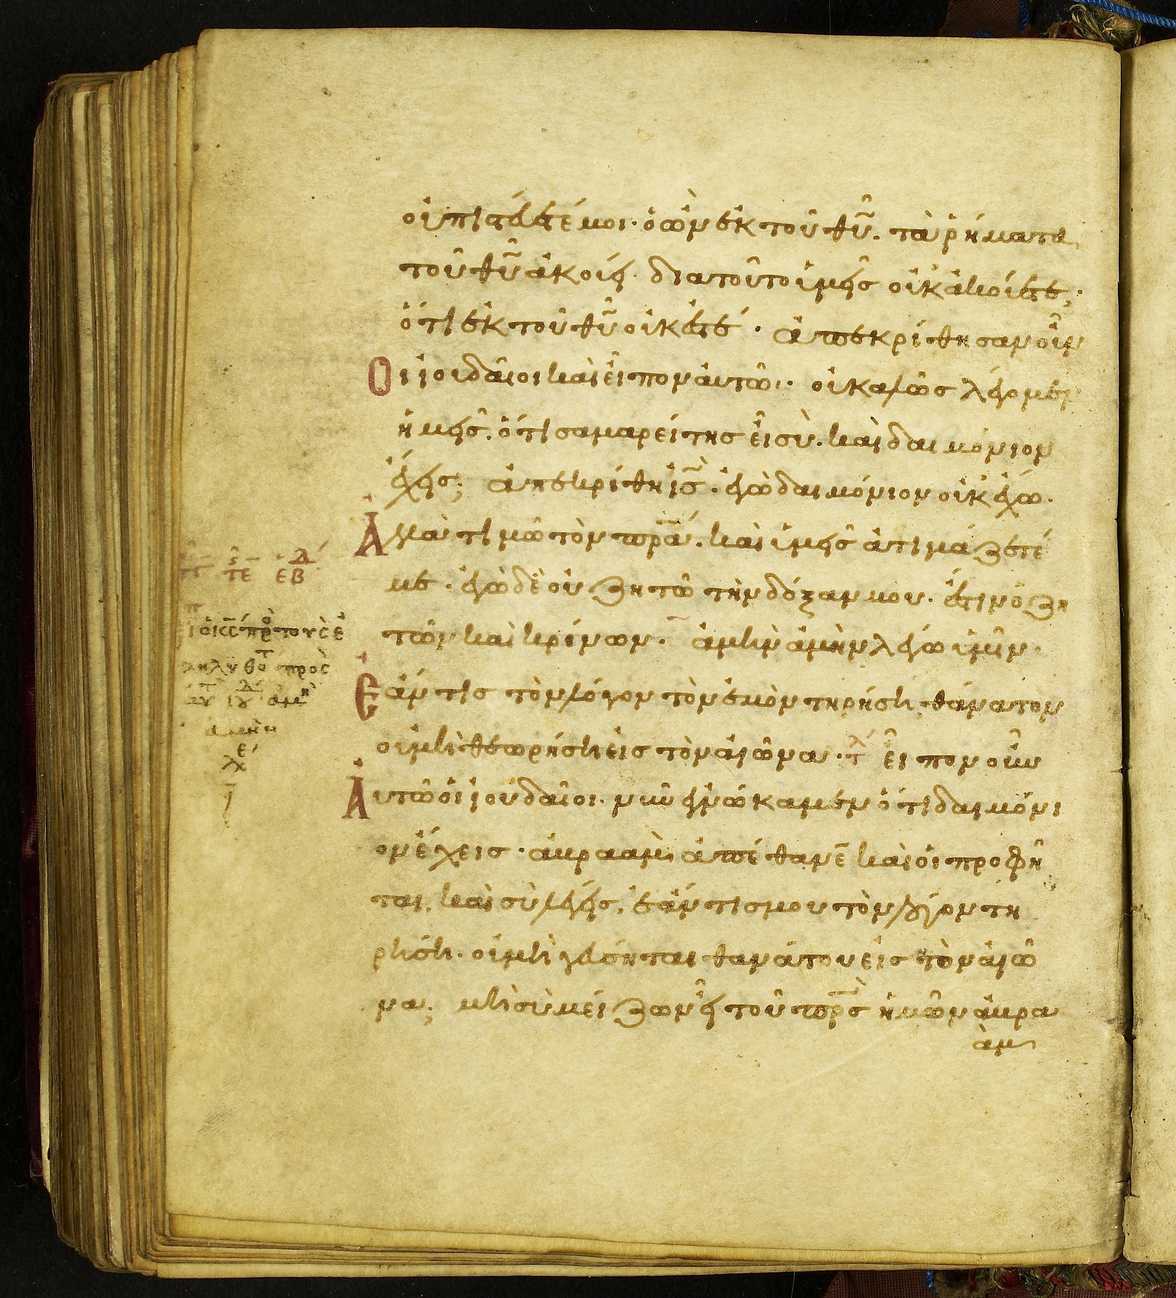 οὐ πιστεύετέ μοι· ὁ ὢν ἐκ τοῦ θῦ. τὰ ῥήματα
τοῦ θῦ ἀκούει· διατοῦτο ὑμεῖς οὐκ ἀκούετε,·
ὅτι ἐκ τοῦ θῦ οὐκ ἐστέ· ἀπεκρίθησαν οὖν
Οἱ ἰουδαῖοι καὶ εἶπον αὐτῶ· οὐ καλῶς λέγομεν
ἡμεῖς, ὅτι σαμαρείτης εἶ σὺ. καὶ δαιμόνιον
ἔχεις; ἀπεκρίθη ἰς· ἐγὼ δαιμόνιον οὐκ ἔχω·
Ἀλλὰ τιμῶ τὸν πρα. καὶ ὑμεῖς ἀτιμάζετέ
με· ἐγὼ δὲ οὐ ζητῶ τὴν δόξαν μου· ἔστιν ὁ ζη
τῶν καὶ κρίνων· ἀμὴν ἀμὴν λέγω ὑμῖν·
Ἐάν τις τὸν λόγον τὸν ἐμὸν τηρήση, θάνατον
οὐ μὴ θεωρήση εἰς τὸν αἰῶνα· εἶπον οὖν
Αὐτῶ οἱ ἰουδαῖοι· νῦν ἐγνώκαμεν ὅτι δαιμόνι
ον ἔχεις· ἀβραὰμ ἀπέθανε καὶ οἱ προφῆ
ται, καὶ σὺ λέγεις, ἐάν τις μου τὸν λόγον τη
ρήση· οὐ μὴ γεύσηται θανάτου εἰς τὸν αἰῶ
να; μὴ σὺ μείζων εἶ τοῦ πρς ἡμῶν ἀβρα
ὰμ